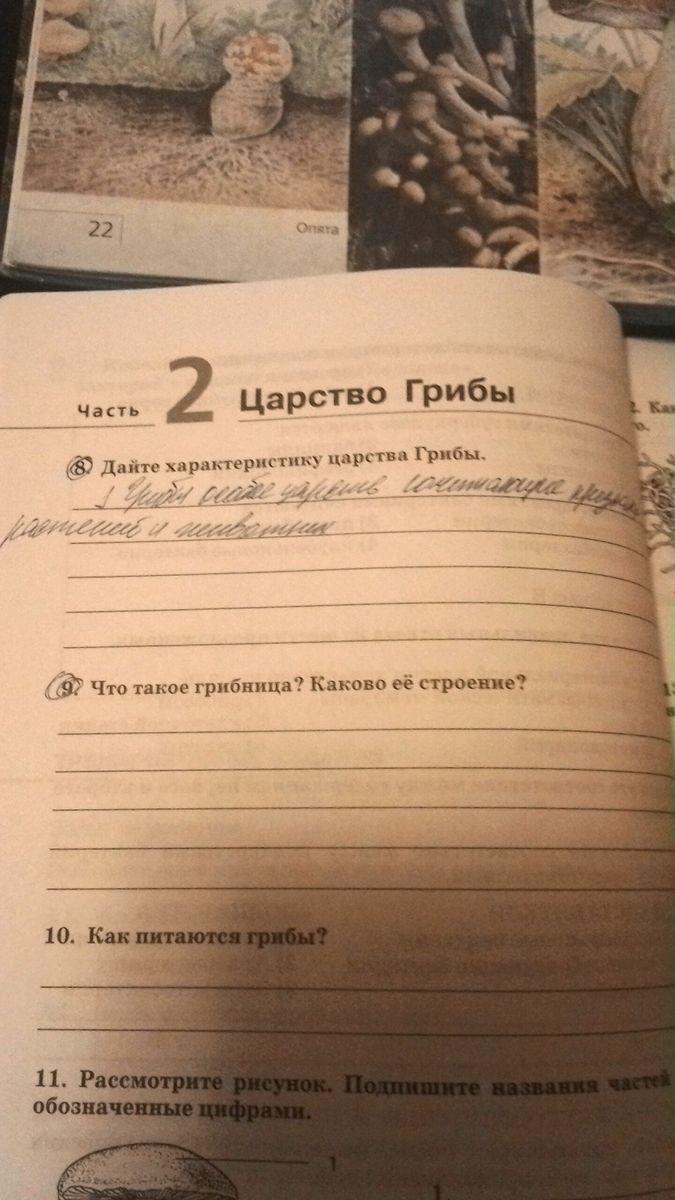 22
Опята
Часть 2 Царство Грибы
8. Дайте характеристику царства Грибы.
Грибы особое царство сочитающие признаки
растений и животных
9. Что такое грибница? Каково её строение?
10. Как питаются грибы?
11. Рассмотрите рисунок. Подпишите названия частей
обозначенные цифрами.
1
1